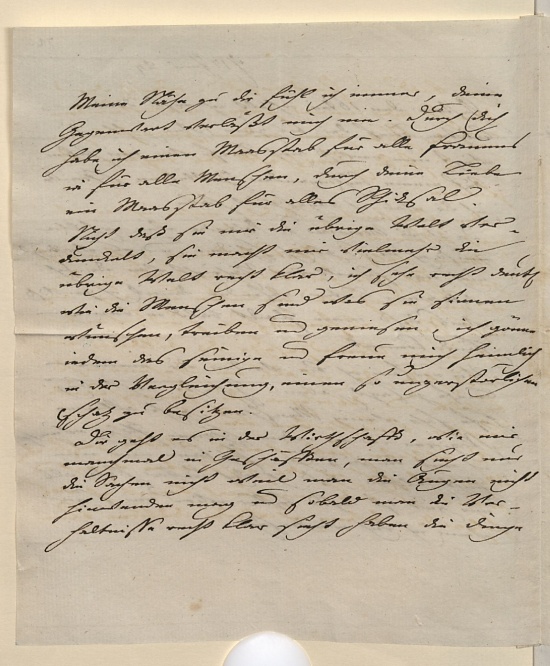 Meine Nähe zu dir fühl ich immer, deine
Gegenwart verläßt mich nie. Durch dich
habe ich einen Maasstab für alle Frauens
ia für alle Menschen, durch deine Liebe
ein Maasstab für alles Schiksal.
Nicht daß sie mir die übrige Welt ver-
dunckelt, sie macht mir vielmehr die
übrige Welt recht klar, ich sehe recht deutl
wie die Menschen sind was sie sinnen
wünschen, treiben und geniesen, ich gönne
iedem das seinige und freue mich heimlich
in der Vergleichung, einen so unzerstörlichen
Schatz zu besitzen.
Dir geht es in der Wirthschafft, wie mir
manchmal in Geschäfften, man sieht nur
die Sachen nicht weil man die Augen nicht
hinwenden mag und sobald man die Ver-
hältnisse recht klar sieht haben die Dinge